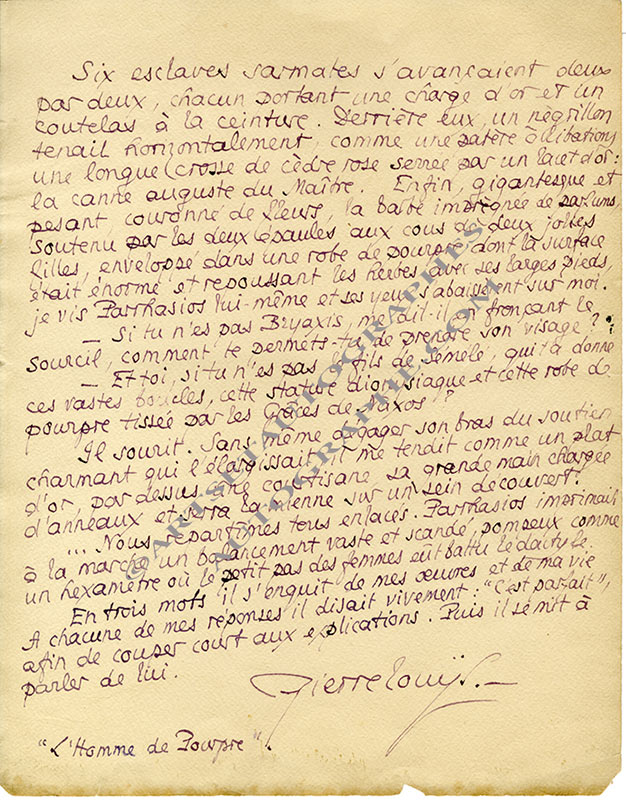 Six esclaves sarmates s'avançaient deux
par deux, chacun portant une charge d'or et un
coutelas à la ceinture. Derrière eux, un négrillon
tenait horizontalement, comme une patère à libations
une longue crosse de cèdre rose serrée par un lacet d'or:
la canne auguste du Maître. Enfin, gigantesque et
pesant, couronné de fleurs, la barbe imprégnée de parfums,
soutenu par les deux épaules aux cous de deux jolies
filles, enveloppé dans une robe de pourpre dont la surface
était énorme et repoussant les herbes avec ses larges pieds,
je vis Parrhasios lui-même et ses yeux s'abaissèrent sur moi.
– Si tu n'es pas Bryaxis, me dit-il en fronçant le
sourcil, comment te permets-tu de prendre son visage?
– Et toi, si tu n'es pas le fils de Sémélé, qui t'a donné
ces vastes boucles, cette stature dionysiaque et cette robe de
pourpre tissée par les Grâces de Naxos?
Il sourit. Sans même dégager son bras du soutien
charmant qui l'élargissait, il me tendit comme un plat
d'or, par dessus une courtisane sa grande main chargée
d'anneaux et serra la mienne sur un sein découvert.
... Nous repartîmes tous enlacés. Parrhasios imprimait
à la marche un balancement vaste et scandé, pompeux comme
un hexamètre où le petit pas des femmes eût battu le dactyle.
En trois mots il s'enquit de mes œuvres et de ma vie
A chacune de mes réponses il disait vivement: "C'est parfait",
afin de couper court aux explications. Puis il se mit à
parler de lui.
Pierre Louÿs. –
"L'Homme de Pourpre".
© ARTSETAUTOGRAPHES
AUTOGRAPHE.COM